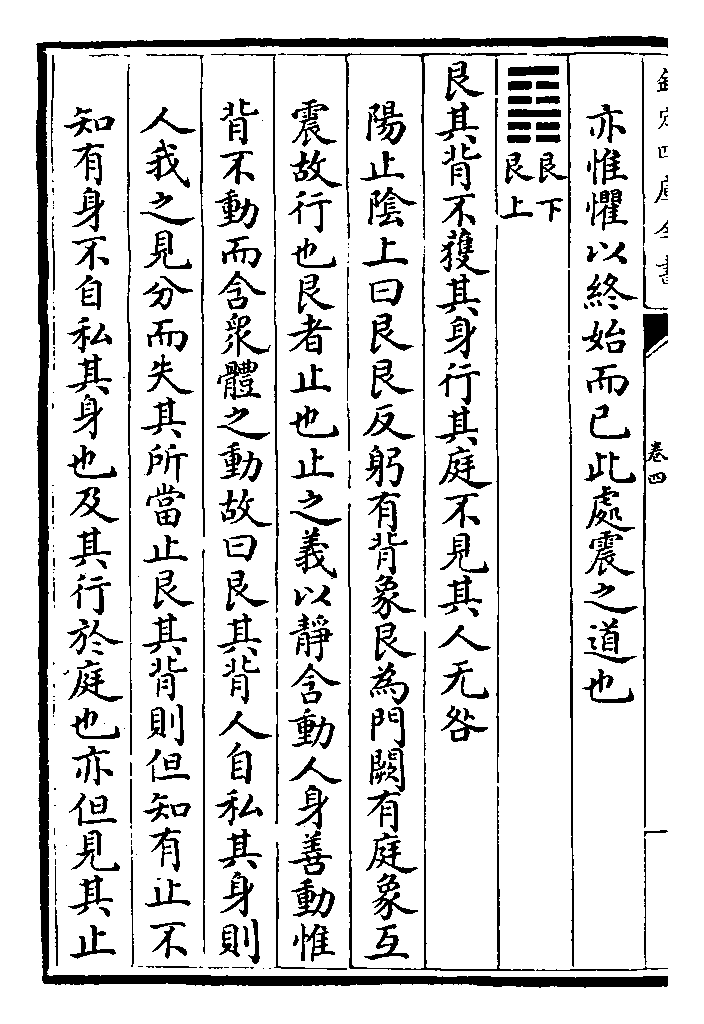 欽定四庫全書
卷四
亦惟懼以終始而已此處震之道也
䷳艮下艮上
艮其背不獲其身行其庭不見其人无咎
陽止陰上曰艮艮反躬有背象艮為門闕有庭象互
震故行也艮者止也止之義以靜含動人身善動惟
背不動而含衆體之動故曰艮其背人自私其身則
人我之見分而失其所當止艮其背則但知有止不
知有身不自私其身也及其行於庭也亦但見其止